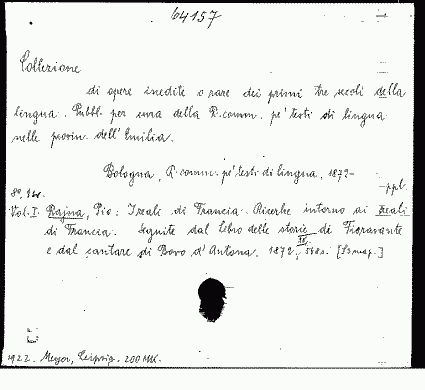 64157
Collezione
di opere inedite o rare dei primi tre secoli della
lingua. Pubbl. per cura della R. comm. pe' testi di lingua
nelle provin. dell' Emilia.
Bologna, R. comm. pe' testi di lingua, 1872-
8°.
Vol. I. Rajna, Pio: I reali di Francia. Ricerche intorno ai reali
di Francia. Seguite dal libro delle storie di Fioravante
e dal cantare di Bovo d'Antona. 1872.
1922. Meyer, Leipzig. 200 Mk.